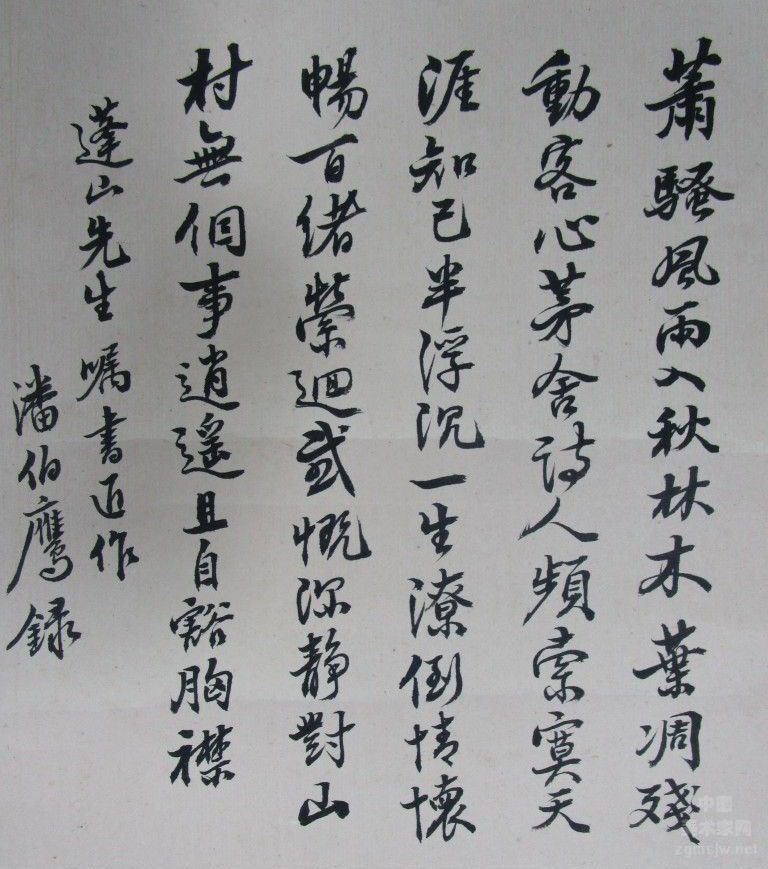 蕭騷風雨入秋林木葉凋殘
動客心茅舍詩人頻索寞天
涯知己半浮沉一生潦倒情懷
暢百緒縈迴感慨深靜對山
村無個事逍遙且自豁胸襟
蓬山先生嘱書近作
潘伯鷹録
中国
美术家网
zgmsjw.net